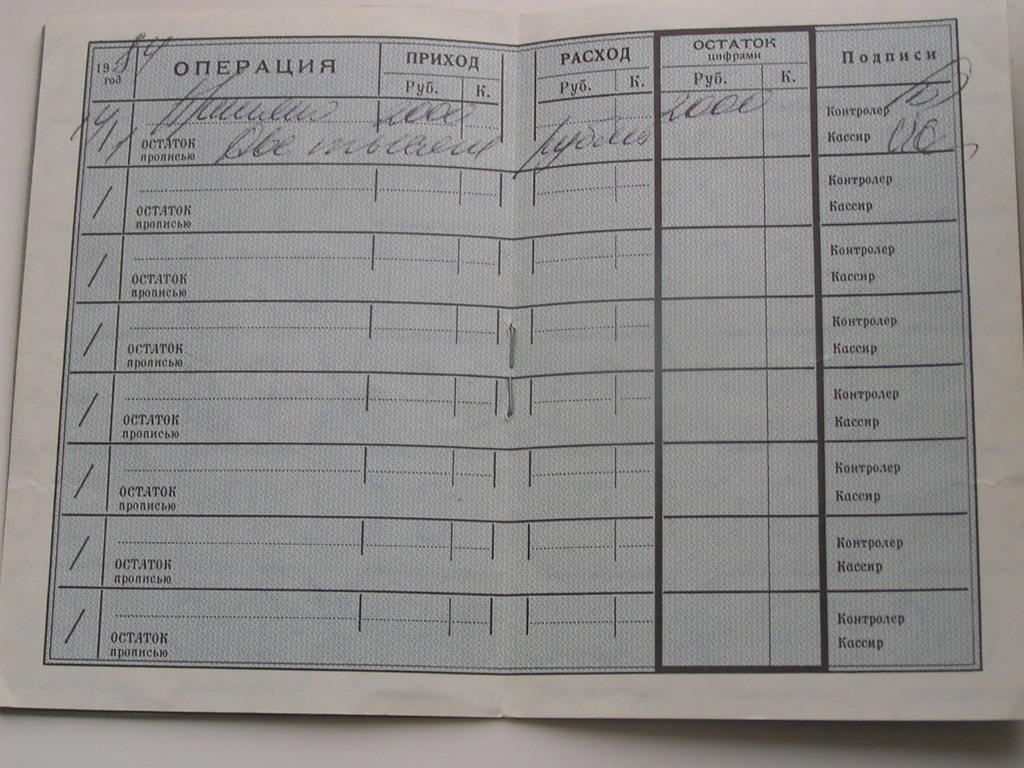 1984 год ОПЕРАЦИЯ ПРИХОД РАСХОД ОСТАТОК цифрами Подписи
Руб. К. Руб. К. Руб. К.
Принято 2000 2000 Контролер
ОСТАТОК прописью Две тысячи рублей Кассир
/ Контролер
ОСТАТОК прописью Кассир
/ Контролер
ОСТАТОК прописью Кассир
/ Контролер
ОСТАТОК прописью Кассир
/ Контролер
ОСТАТОК прописью Кассир
/ Контролер
ОСТАТОК прописью Кассир
/ Контролер
ОСТАТОК прописью Кассир
/ Контролер
ОСТАТОК прописью Кассир